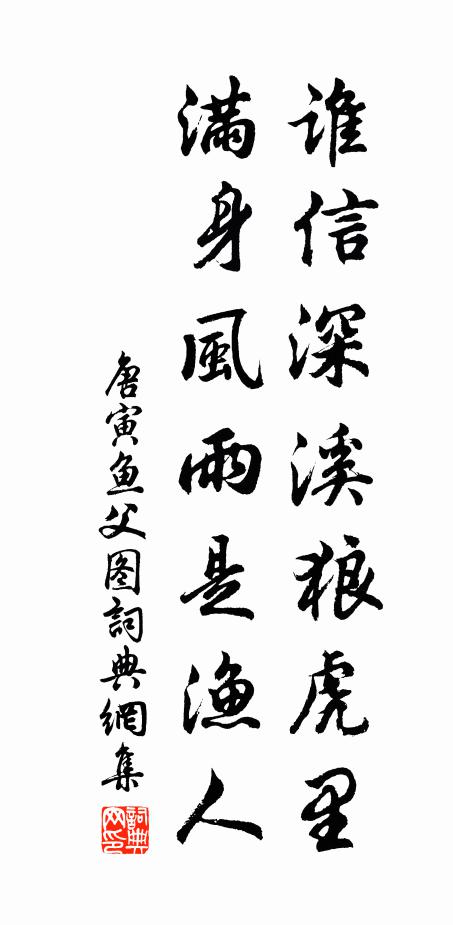 誰信深溪狼虎里
滿身風雨是漁人
唐寅鱼父图詞典網集
詞典网印